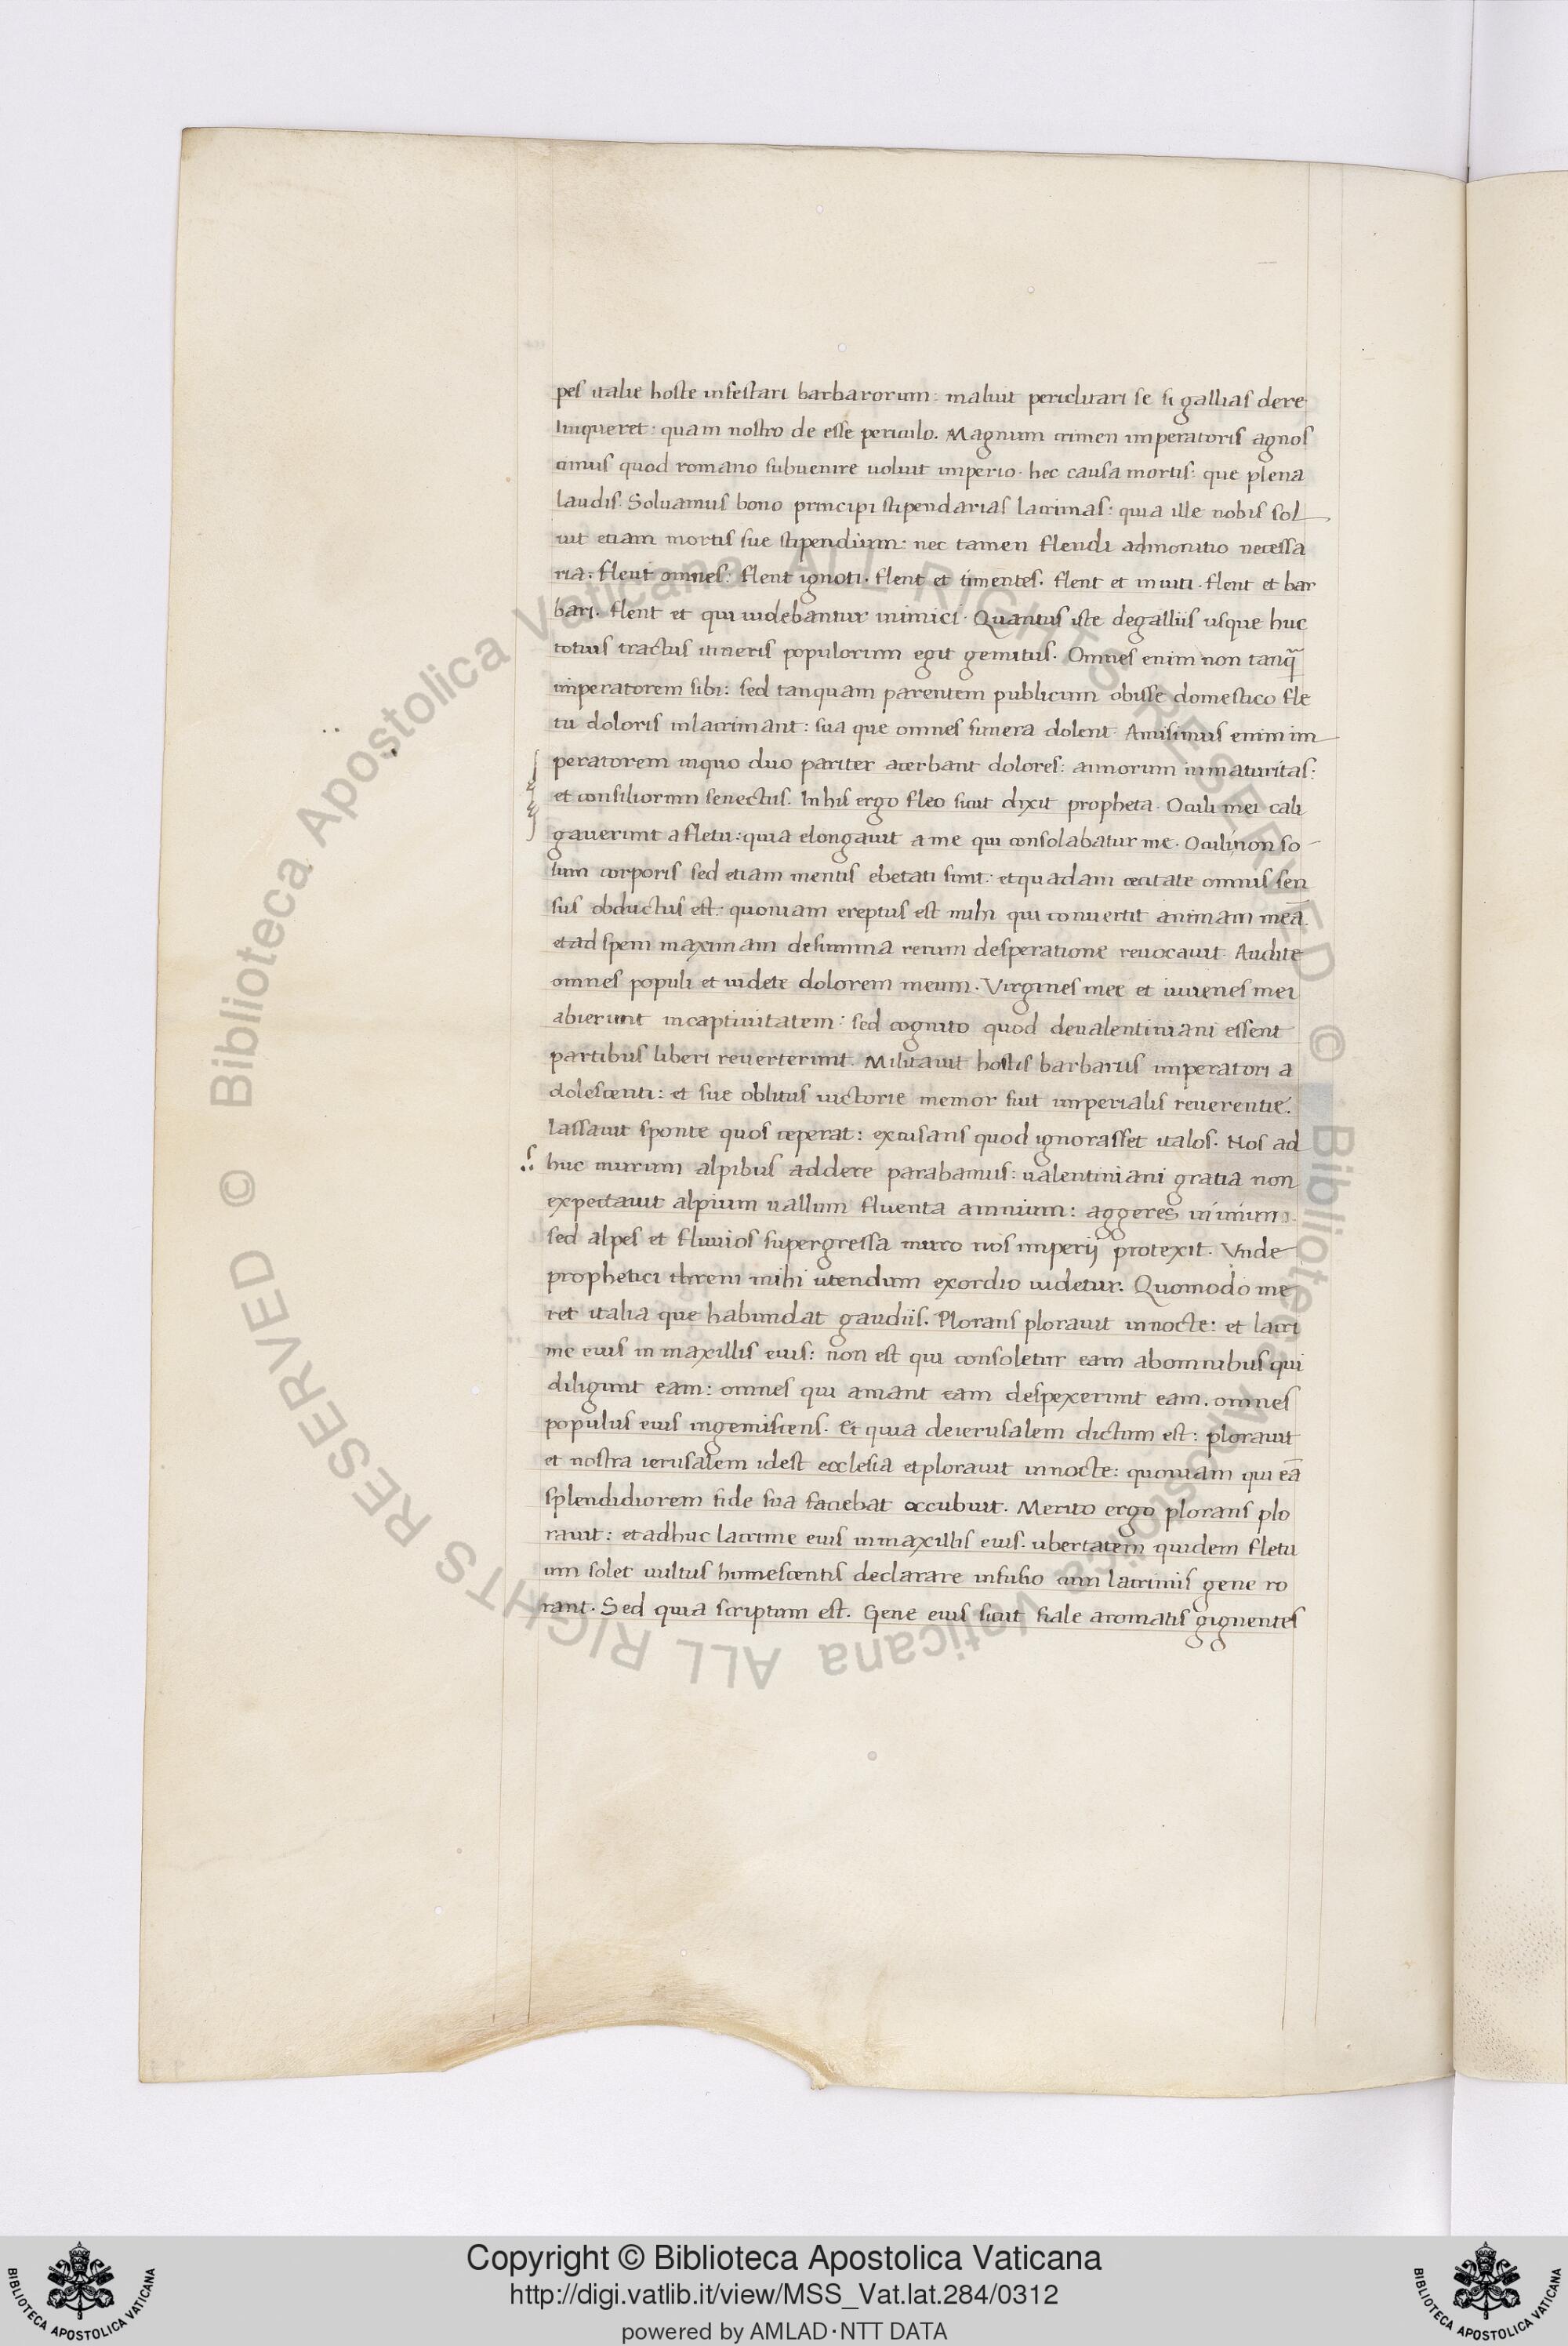 pes italie hoste infestari barbarorum: maluit periclitari se si gallias dere
linqueret: quam nostro de esse periculo. Magnum crimen imperatoris agnos
cimus quod romano subuenire uoluit imperio. hec causa mortis: que plena
laudis. Soluamus bono principi stipendarias lacrimas: quia ille nobis sol
uit etiam mortis sue stipendium: nec tamen flendi admonitio necessa
ria. flent omnes: flent ignoti. flent et timentes. flent et inuiti. flent et bar
bari. flent et qui uidebantur inimici. Quantus iste degalliis usque huc
totius tractus itineris populorum egit gemitus. Omnes enim non tanq̃
imperatorem sibi: sed tanquam parentem publicum obisse domestico fle
tu doloris inlacrimant: sua que omnes funera dolent. Amisimus enim im
peratorem inquo duo pariter acerbant dolores: annorum inmaturitas:
et consiliorum senectus. Inhis ergo fleo sicut dixit propheta. Oculi mei cali
gauerunt afletu: quia elongauit ame qui consolabatur me. Oculi non so
lum corporis sed etiam mentis ebetati sunt: etquadam cecitate omnis sen
sus obductus est: quoniam ereptus est mihi qui conuertit animam meā.
etad spem maximam desumma rerum desperatione reuocauit. Audite
omnes populi et uidete dolorem meum. Virgines mee et iuuenes mei
abierunt incaptiuitatem: sed cognito quod deualentiniani essent
partibus liberi reuerterunt. Militauit hostis barbarus imperatori a
dolescenti: et sue oblitus uictorie memor fuit imperialis reuerentie.
Lassauit sponte quos ceperat: excusans quod ignorasset italos. Nos ad
huc murum alpibus addere parabamus: ualentiniani gratia non
expectauit alpium uallum fluenta amnium: aggeres niuium
sed alpes et fluuios supergressa muro nos imperij protexit. Vnde
prophetici threni mihi utendum exordio uidetur. Quomodo me
ret italia que habundat gaudiis. Plorans plorauit innocte: et lacri
me eius in maxillis eius: non est qui consoletur eam abomnibus qui
diligunt eam: omnes qui amant eam despexerunt eam. omnes
populus eius ingemiscens. Et quia deierusalem dictum est: plorauit
et nostra ierusalem idest ecclesia etplorauit innocte: quoniam qui eā
splendidiorem fide sua faciebat occubuit. Merito ergo plorans plo
rauit: etadhuc lacrime eius inmaxillis eius. ubertatem quidem fletu
um solet uultus humescentis declarare infusio cum lacrimis gene ro
rant. Sed quia scriptum est. Gene eius sicut fiale aromatis gignentes
© Biblioteca Apostolica Vaticana ALL RIGHTS RESERVED
© Biblioteca Apostolica Vaticana ALL RIGHTS RESERVED
Copyright © Biblioteca Apostolica Vaticana
http://digi.vatlib.it/view/MSS_Vat.lat.284/0312
powered by AMLAD·NTT DATA
BIBLIOTECA APOSTOLICA VATICANA
BIBLIOTECA APOSTOLICA VATICANA